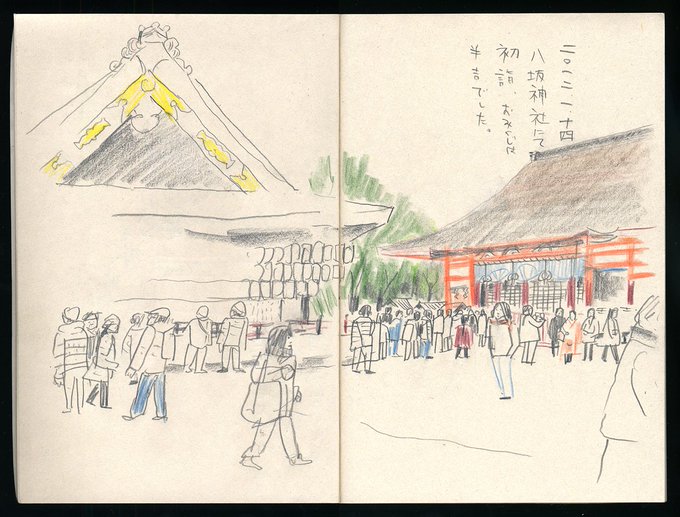 二〇一二 一、十四
八坂神社にて
初詣、おみくじは
半吉でした。